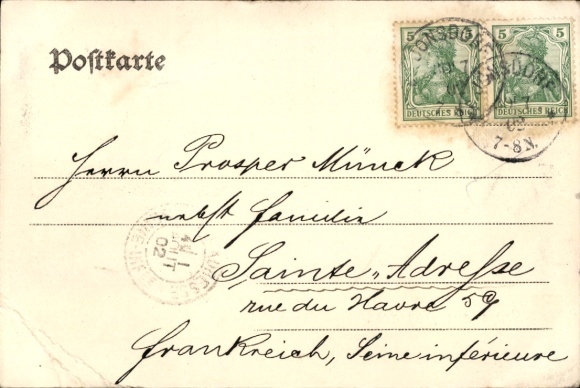 Postkarte
5 5
DEUTSCHES REICH
5 5
DEUTSCHES REICH
JONSDORF
JONSDORF
7-8N.
Herrn Prosper Münck
nebst Familie
AOUT
02
Sainte-Adresse
rue du Havre 59
Frankreich, Seine inférieure